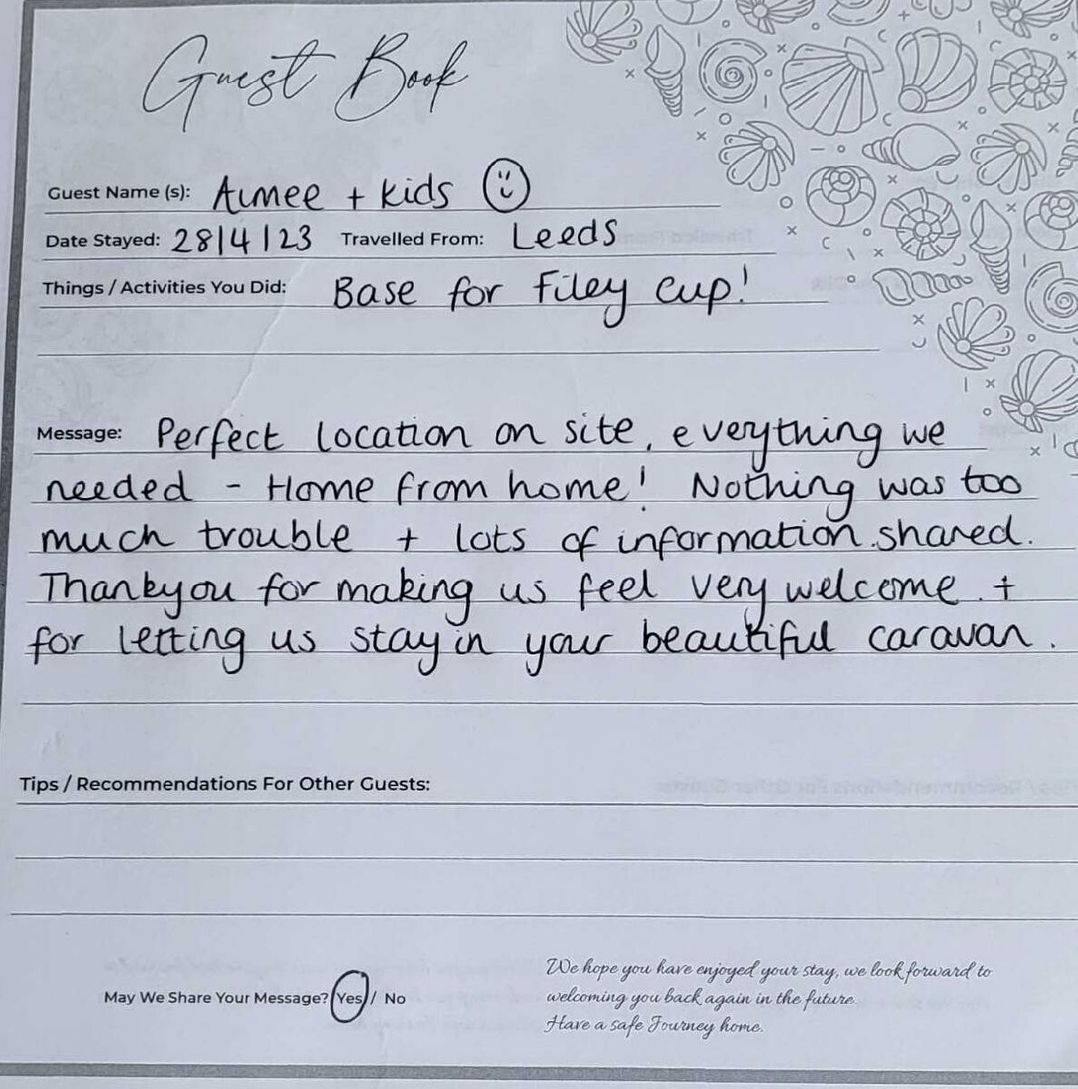 Guest Book
Guest Name (s): Aimee + kids
Date Stayed: 28/4/23 Travelled From: Leeds
Things / Activities You Did: Base for Filey Cup!
Message: Perfect location on site, everything we
needed - Home from home! Nothing was too
much trouble + lots of information shared.
Thankyou for making us feel very welcome. +
for letting us stay in your beautiful caravan.
Tips / Recommendations For Other Guests:
May We Share Your Message? Yes / No
We hope you have enjoyed your stay, we look forward to
welcoming you back again in the future.
Have a safe Journey home.